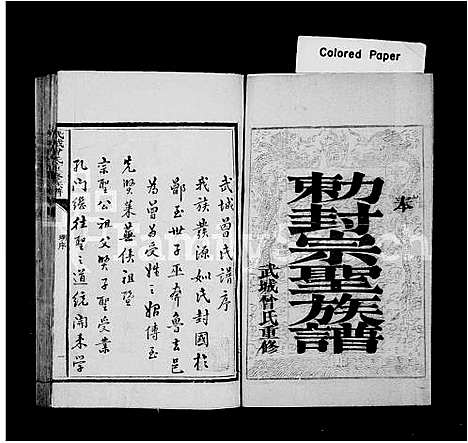 Colored Paper
本
勅封宗聖族譜
武城曾氏重修
武城曾氏譜序
我族發源姒氏封國於
鄫至世子巫奔魯去邑
為曾為受姓之始傳至
先賢萊蕪侯祖暨
宗聖公祖父賢子聖受業
孔門繼往聖之道統開來學